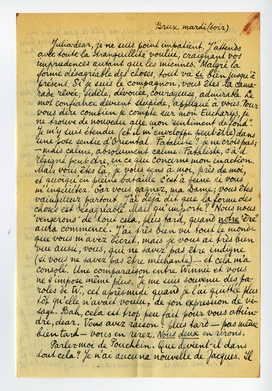 Brux. mardi (soir)
Julia dear, je ne suis point impatient. J'attends
avec toute la tranquillité voulue, craignant vos
imprudences autant que les miennes. Malgré la
forme désagréable des choses, tout va si bien jusqu'à
présent. Si je suis le compagnon, vous êtes la cama-
rade rêvée, fidèle, dévouée, courageuse, admirable. Le
mot confiance devient stupide, appliqué à vous. Pour
vous dire combien je compte sur mon échange, je
ne trouve de nouveau que mon sentiment de fond.
Je m'y suis étendu (et il m'enveloppe peut-être) dans
une fort sense d'Oriental. Fataliste? je ne crois pas:
– mais calme, absolument calme. Fataliste, s'il se
résigne peut-être, en ce qui concerne mon inaction.
Mais vous êtes là, je vous sens à moi, près de moi,
et quoiqu'en pleine bataille c'est à peine si vous
m'inquiétez. Car vous gagnez, ma Dame; vous êtes
vainqueur partout. J'ai déjà dit que la forme des
choses est désagréable. Mais qu'importe? Nous nous
vengerons de tout cela, plus tard, quand notre "ère"
aura commencé. J'ai très bien vu tout le mon-
que vous m'avez écrit, mais je vous ai très bien
vue aussi, vous, qui ne savez pas être indigne
(si vous ne savez pas être méchante) – et cela m'a
consolé. Une comparaison entre Winnie et vous
ne s'impose même plus. Je me suis souvenu des pa-
roles de W., cet après-midi, quand je l'ai quittée plus
tôt qu'elle n'avait voulu, de son expression de vi-
sage. Bah, cela est trop peu fait pour vous abîm-
dre, dear. Vous avez raison: plus tard – pas même
bien tard – vous en rirez. Nous deux en rirons.
Parlez-moi de Pouchkine. Que devient-il dans
tout cela? Je n'ai aucune nouvelle de Jacques. Il